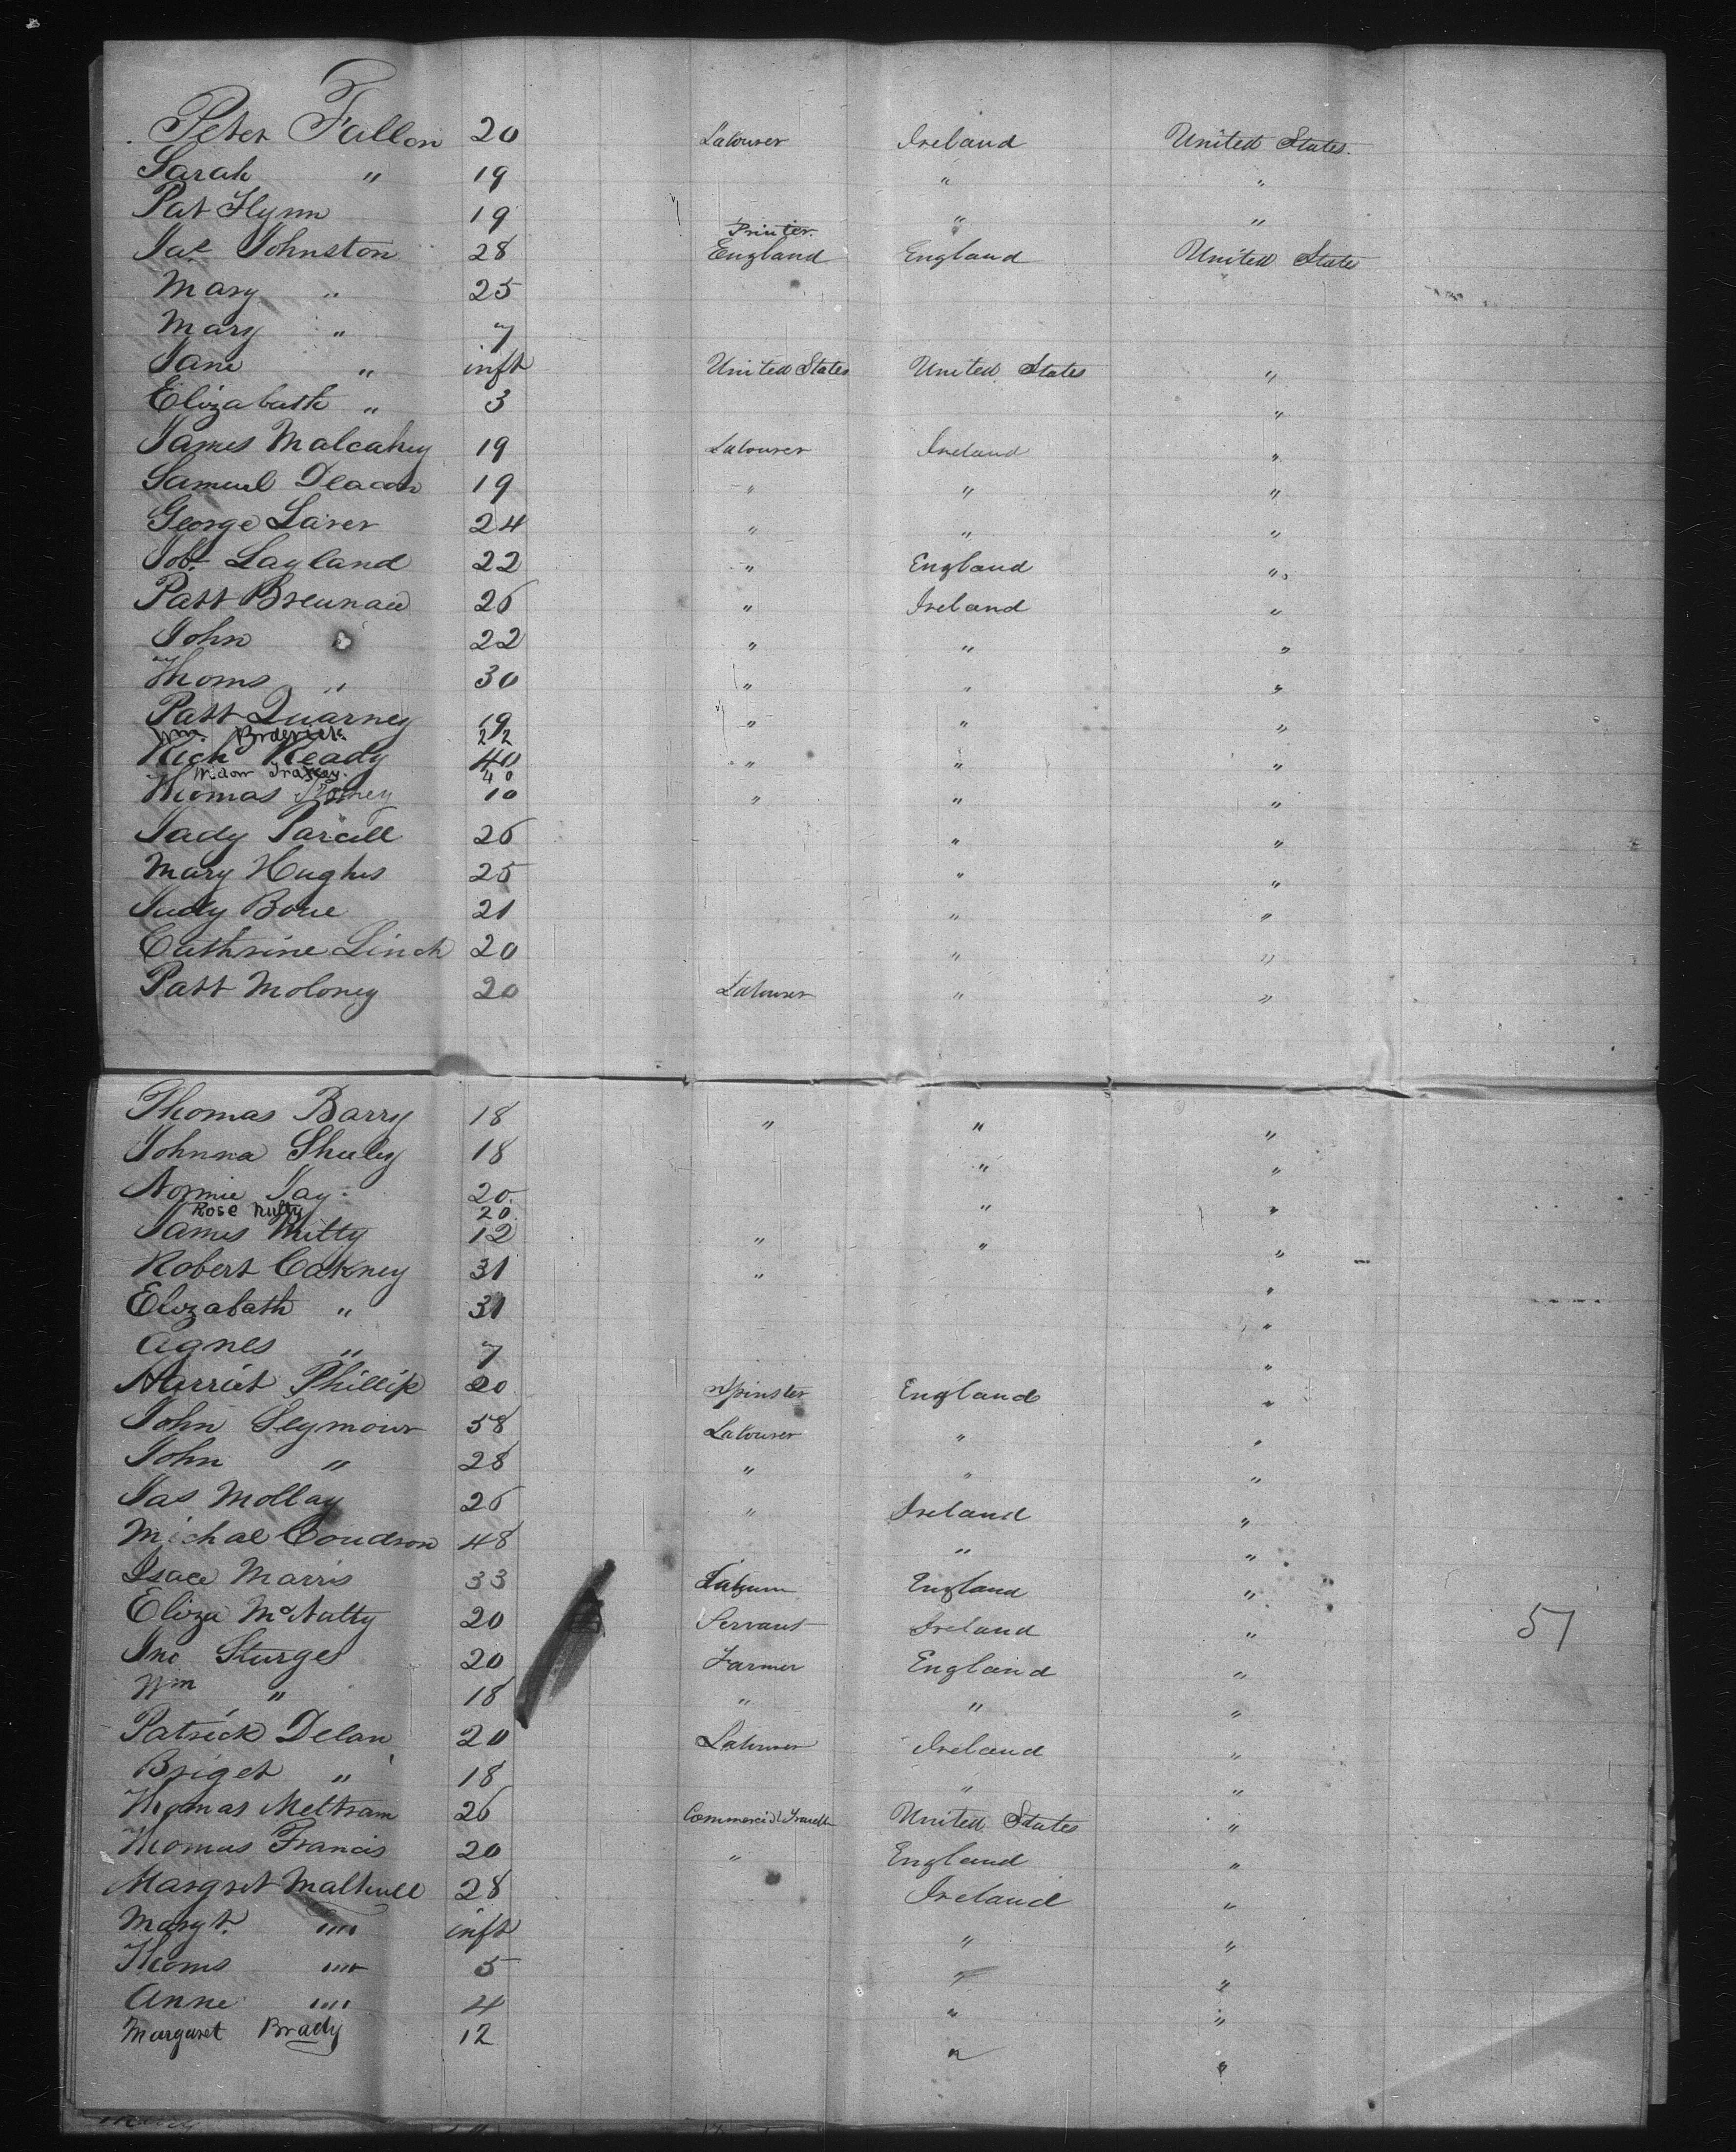 Peter Fallon 20 Labourer Ireland United States.
Sarah " 19 " "
Pat Flynn 19 " "
Printer.
Jas Johnston 28 England England United States
Mary " 25
Mary " 7
Jane " inft United States United States "
Elizabath " 3 "
James Malcahey 19 Labourer Ireland "
Samuel Deacon 19 " " "
George Laver 24 " " "
Job. Layland 22 " England "
Patt Brennan 26 " Ireland "
John " 22 " " "
Thoms " 30 " " "
Patt Quarney 19 " " "
Wm. Broderick. 22
Rich Ready 40 " " "
Widow 40
Thomas 10 " " "
26 " "
Mary Hughes 25 " "
Judy Bone 21 " "
Cathrine Linch 20 " "
Patt Moloney 20 Labourer " "
Thomas Barry 18 " " "
Johnna Sheely 18 " "
20. " "
Rose Nulty 20.
James Nulty 12 " " "
Robert Cakney 31 " "
Elizabath " 31 "
Agnes " 7 "
Harriet Phillip 20 Spinster England "
John Seymour 58 Labourer " "
John " 28 " " "
Jas Mollay 26 " Ireland "
Michael Coudron 48 " "
Isace Marris 33 England "
Eliza McNulty 20 Servant Ireland " 51
Jno Sturges 20 Farmer England "
Wm " 18 " " "
Patrick Delan 20 Labourer Ireland "
Briget " 18 " "
Thomas Meltram 26 Commercial Travell United States "
Thomas Francis 20 " England "
Margret 28 Ireland "
Margt. "" inft " "
Thoms "" 5 " "
Anne "" 4 " "
Margaret Brady 12 " "